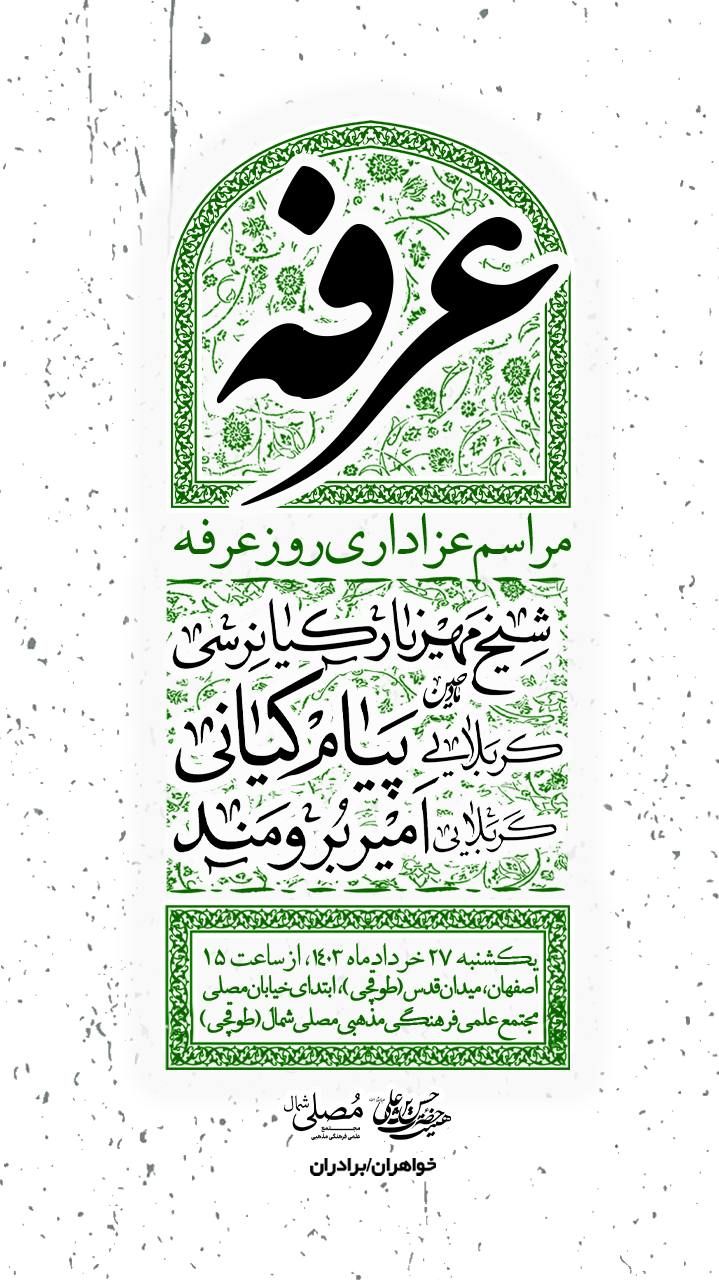 عرفه
مراسم عزاداری روز عرفه
شیخ مهزیار کیانرسی
با نوای
کربلایی پیام کیانی
کربلایی امیر برومند
یکشنبه ۲۷ خرداد ماه ۱۴۰۳، از ساعت ۱۵
اصفهان، میدان قدس (طوقچی)، ابتدای خیابان مصلی
مجتمع علمی فرهنگی مذهبی مصلی شمال (طوقچی)
هیئت حضرت حسین بن علی مُصلی شمال
مجتمع
علمی فرهنگی مذهبی
خواهران/برادران